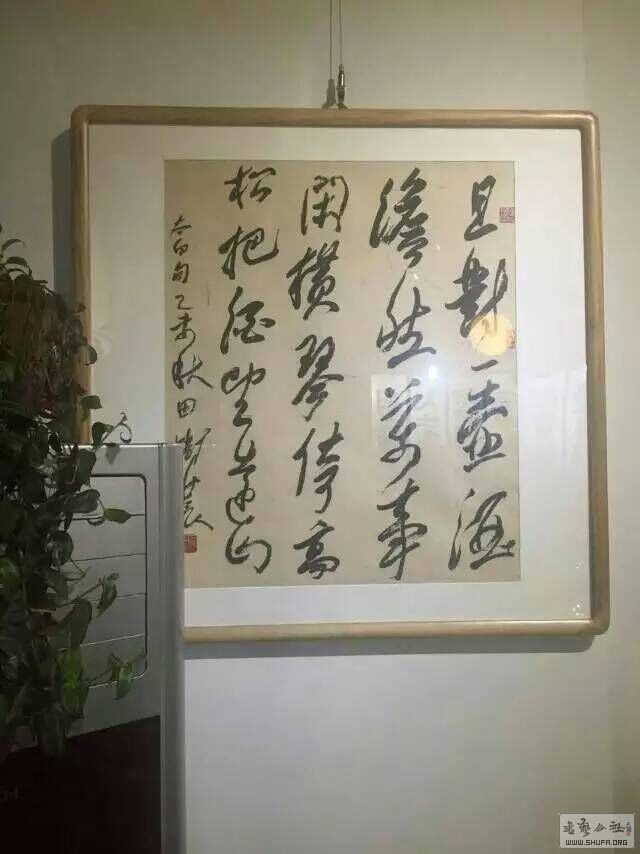 且對一壺酒
澹然萬事
閑横琴倚高
松把酒望遠山
太白句乙未秋田樹萇
書藝公社
WWW.SHUFA.ORG